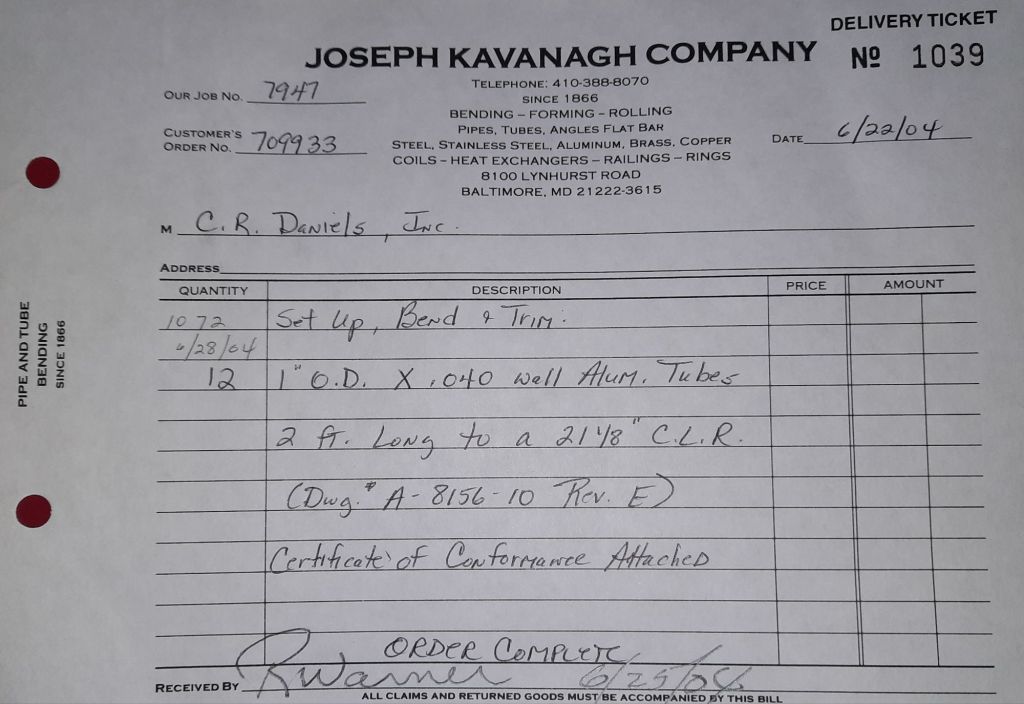 DELIVERY TICKET
JOSEPH KAVANAGH COMPANY
Nº 1039
TELEPHONE: 410-388-8070
SINCE 1866
BENDING – FORMING – ROLLING
PIPES, TUBES, ANGLES FLAT BAR
STEEL, STAINLESS STEEL, ALUMINUM, BRASS, COPPER
COILS – HEAT EXCHANGERS – RAILINGS – RINGS
8100 LYNHURST ROAD
BALTIMORE, MD 21222-3615
OUR JOB NO. 7947
CUSTOMER'S
ORDER NO. 709933
DATE 6/22/04
M C.R. Daniels, Inc.
ADDRESS
QUANTITY DESCRIPTION PRICE AMOUNT
1072 Set Up, Bend & Trim:
6/28/04
12 1" O.D. X .040 wall Alum. Tubes
2 ft. Long to a 21 1/8" C.L.R.
(Dwg.# A-8156-10 Rev. E)
Certificate of Conformance Attached
ORDER COMPLETE
RECEIVED BY R Warner 6/25/04
ALL CLAIMS AND RETURNED GOODS MUST BE ACCOMPANIED BY THIS BILL
PIPE AND TUBE
BENDING
SINCE 1866